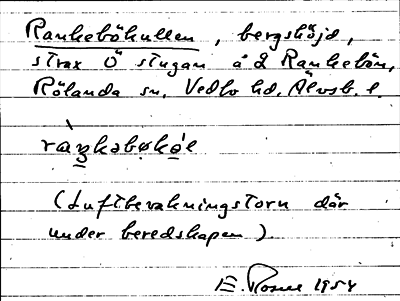 Rankebökullen, bergshöjd,
strax Ö stugan å 2 Rankebön,
Rölanda sn, Vedbo hd, Älvsb. l.
(Luftbevakningstorn där
under beredskapen).
E. Rosell 1954